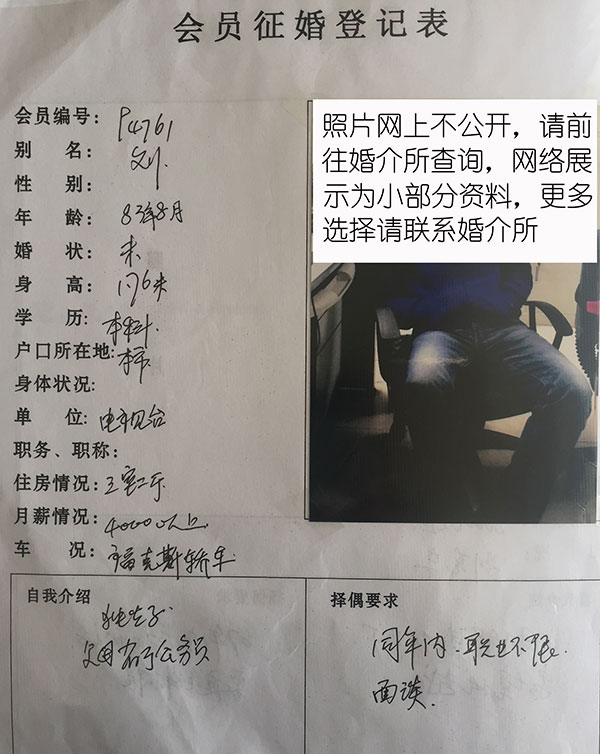 会员征婚登记表
会员编号: P4761
别 名: 刘
性 别:
年 龄: 83年8月
婚 状: 未
身 高: 176米
学 历: 本科
户口所在地: 本市
身体状况:
单 位: 电视台
职务、职称:
住房情况: 三室二厅
月薪情况: 4000以上
车 况: 福克斯轿车
照片网上不公开，请前
往婚介所查询，网络展
示为小部分资料，更多
选择请联系婚介所
自我介绍
独生子
父母 公务员
择偶要求
同年内、职业不限.
面谈.